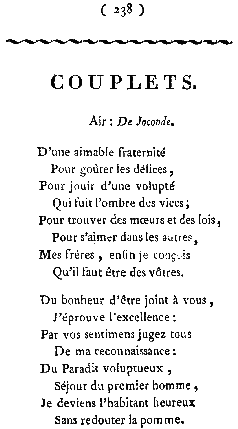 ( 238 )
COUPLETS.
Air : De Joconde.
D'une aimable fraternité
Pour goûter les délices,
Pour jouir d'une volupté
Qui fuit l'ombre des vices;
Pour trouver des mœurs et des lois,
Pour s'aimer dans les autres,
Mes frères, enfin je conçois
Qu'il faut être des vôtres.
Du bonheur d'être joint à vous,
J'éprouve l'excellence :
Par vos sentimens jugez tous
De ma reconnaissance :
Du Paradis voluptueux,
Séjour du premier homme,
Je deviens l'habitant heureux
Sans redouter la pomme.